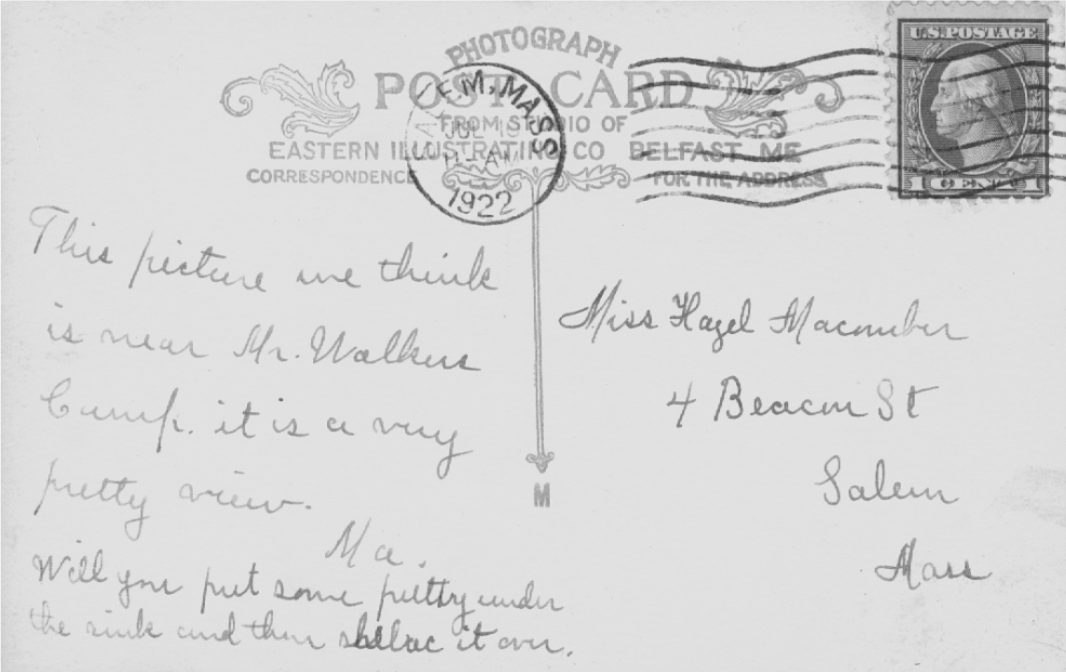 PHOTOGRAPH
POST CARD
FROM STUDIO OF
EASTERN ILLUSTRATING CO BELFAST, ME
CORRESPONDENCE
FOR THE ADDRESS
SALEM, MASS
JUL
11-AM
1922
U.S. POSTAGE
1 CENT 1
This picture we think
is near Mr. Walkers
Camp. it is a very
pretty view.
Ma.
Will you put some puttsy under
the sink and then shellac it over.
M
Miss Hazel Macomber
4 Beacon St
Salem
Mass